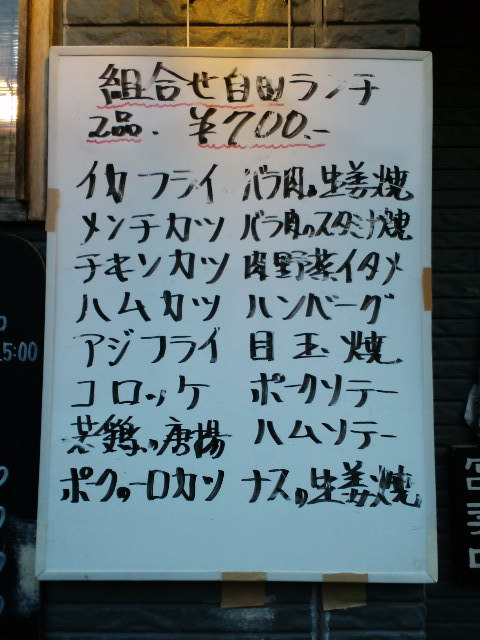 組合せ自由ランチ
2品. ¥700.-
イカフライ バラ肉の生姜焼
メンチカツ バラ肉のスタミナ焼
チキンカツ 肉野菜イタメ
ハムカツ ハンバーグ
アジフライ 目玉焼
コロッケ ポークソテー
若鶏の唐揚 ハムソテー
ポークの一口カツ ナスの生姜焼
5:00